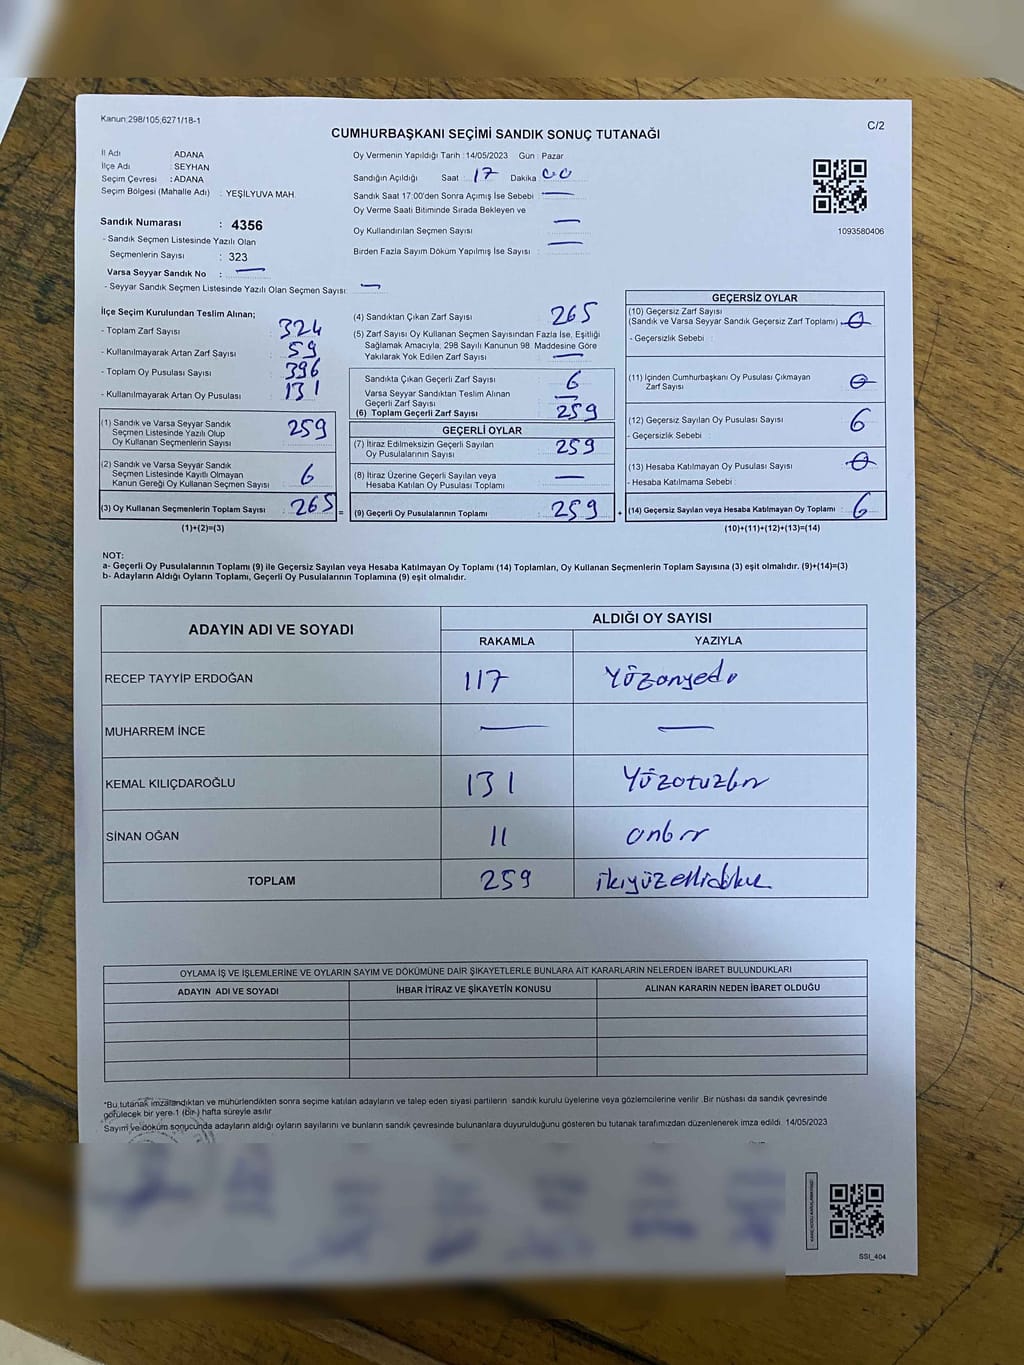 Kanun:298/105,6271/18-1
C/2
CUMHURBAŞKANI SEÇİMİ SANDIK SONUÇ TUTANAĞI
İl Adı : ADANA
İlçe Adı : SEYHAN
Seçim Çevresi : ADANA
Seçim Bölgesi (Mahalle Adı) : YEŞİLYUVA MAH.
Sandık Numarası : 4356
- Sandık Seçmen Listesinde Yazılı Olan
Seçmenlerin Sayısı : 323
Varsa Seyyar Sandık No : —
- Seyyar Sandık Seçmen Listesinde Yazılı Olan Seçmen Sayısı: —
Oy Vermenin Yapıldığı Tarih :14/05/2023 Gün : Pazar
Sandığın Açıldığı Saat : 17 Dakika : 00
Sandık Saat 17:00'den Sonra Açımış İse Sebebi : —
Oy Verme Saati Bitiminde Sırada Bekleyen ve
Oy Kullandırılan Seçmen Sayısı : —
Birden Fazla Sayım Döküm Yapılmış İse Sayısı : —
1093580406
İlçe Seçim Kurulundan Teslim Alınan;
- Toplam Zarf Sayısı : 324
- Kullanılmayarak Artan Zarf Sayısı : 59
- Toplam Oy Pusulası Sayısı : 396
- Kullanılmayarak Artan Oy Pusulası : 131
(1) Sandık ve Varsa Seyyar Sandık
Seçmen Listesinde Yazılı Olup
Oy Kullanan Seçmenlerin Sayısı : 259
(2) Sandık ve Varsa Seyyar Sandık
Seçmen Listesinde Kayıtlı Olmayan
Kanun Gereği Oy Kullanan Seçmen Sayısı : 6
(3) Oy Kullanan Seçmenlerin Toplam Sayısı : 265
(1)+(2)=(3)
(4) Sandıktan Çıkan Zarf Sayısı : 265
(5) Zarf Sayısı Oy Kullanan Seçmen Sayısından Fazla İse, Eşitliği
Sağlamak Amacıyla, 298 Sayılı Kanunun 98. Maddesine Göre
Yakılarak Yok Edilen Zarf Sayısı : —
Sandıkta Çıkan Geçerli Zarf Sayısı : 6
Varsa Seyyar Sandıktan Teslim Alınan
Geçerli Zarf Sayısı : —
(6) Toplam Geçerli Zarf Sayısı : 259
GEÇERLİ OYLAR
(7) İtiraz Edilmeksizin Geçerli Sayılan
Oy Pusulalarının Sayısı : 259
(8) İtiraz Üzerine Geçerli Sayılan veya
Hesaba Katılan Oy Pusulası Toplamı : —
= (9) Geçerli Oy Pusulalarının Toplamı : 259 +
GEÇERSİZ OYLAR
(10) Geçersiz Zarf Sayısı
(Sandık ve Varsa Seyyar Sandık Geçersiz Zarf Toplamı) : 0
- Geçersizlik Sebebi :
(11) İçinden Cumhurbaşkanı Oy Pusulası Çıkmayan
Zarf Sayısı : 0
(12) Geçersiz Sayılan Oy Pusulası Sayısı : 6
- Geçersizlik Sebebi :
(13) Hesaba Katılmayan Oy Pusulası Sayısı : 0
- Hesaba Katılmama Sebebi :
(14) Geçersiz Sayılan veya Hesaba Katılmayan Oy Toplamı : 6
(10)+(11)+(12)+(13)=(14)
NOT:
a- Geçerli Oy Pusulalarının Toplamı (9) ile Geçersiz Sayılan veya Hesaba Katılmayan Oy Toplamı (14) Toplamları, Oy Kullanan Seçmenlerin Toplam Sayısına (3) eşit olmalıdır. (9)+(14)=(3)
b- Adayların Aldığı Oyların Toplamı, Geçerli Oy Pusulalarının Toplamına (9) eşit olmalıdır.
ADAYIN ADI VE SOYADI
ALDIĞI OY SAYISI
RAKAMLA YAZIYLA
RECEP TAYYİP ERDOĞAN 117 Yüzonyedi
MUHARREM İNCE — —
KEMAL KILIÇDAROĞLU 131 Yüzotuzbir
SİNAN OĞAN 11 onbir
TOPLAM 259 ikiyüzellidokuz
OYLAMA İŞ VE İŞLEMLERİNE VE OYLARIN SAYIM VE DÖKÜMÜNE DAİR ŞİKAYETLERLE BUNLARA AİT KARARLARIN NELERDEN İBARET BULUNDUKLARI
ADAYIN ADI VE SOYADI İHBAR İTİRAZ VE ŞİKAYETİN KONUSU ALINAN KARARIN NEDEN İBARET OLDUĞU
*Bu tutanak imzalandıktan ve mühürlendikten sonra seçime katılan adayların ve talep eden siyasi partilerin sandık kurulu üyelerine veya gözlemcilerine verilir. Bir nüshası da sandık çevresinde
görülecek bir yere 1 (bir) hafta süreyle asılır.
Sayım ve döküm sonucunda adayların aldığı oyların sayılarını ve bunların sandık çevresinde bulunanlara duyurulduğunu gösteren bu tutanak tarafımızdan düzenlenerek imza edildi. 14/05/2023
SSI_404